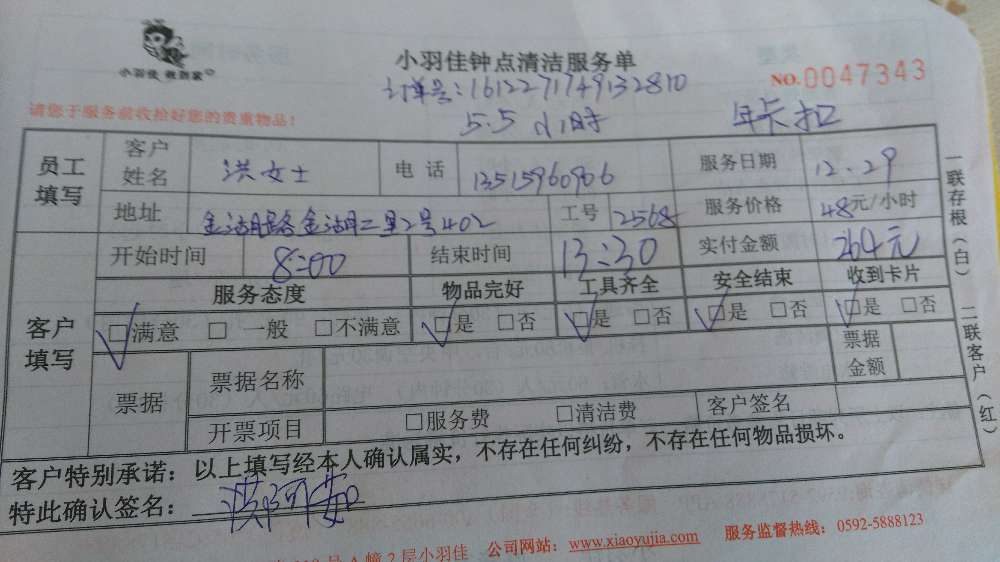 小羽佳 做到家
小羽佳钟点清洁服务单
NO.0047343
订单号:1612271749132810
请您于服务前收拾好您的贵重物品!
5.5小时
年卡扣
员工填写
客户姓名 洪女士 电话 13515960906 服务日期 12.29
地址 金湖路金湖二里2号402 工号 2568 服务价格 48元/小时
客户填写
开始时间 8:00 结束时间 13:30 实付金额 264元
服务态度 物品完好 工具齐全 安全结束 收到卡片
☑满意 □一般 □不满意 ☑是 □否 ☑是 □否 ☑是 □否 ☑是 □否
票据 票据名称 票据金额
开票项目 □服务费 □清洁费 客户签名
客户特别承诺:以上填写经本人确认属实,不存在任何纠纷,不存在任何物品损坏。
特此确认签名:洪
一联存根(白) 二联客户(红)
号A幢2层小羽佳 公司网站:www.xiaoyujia.com 服务监督热线:0592-5888123